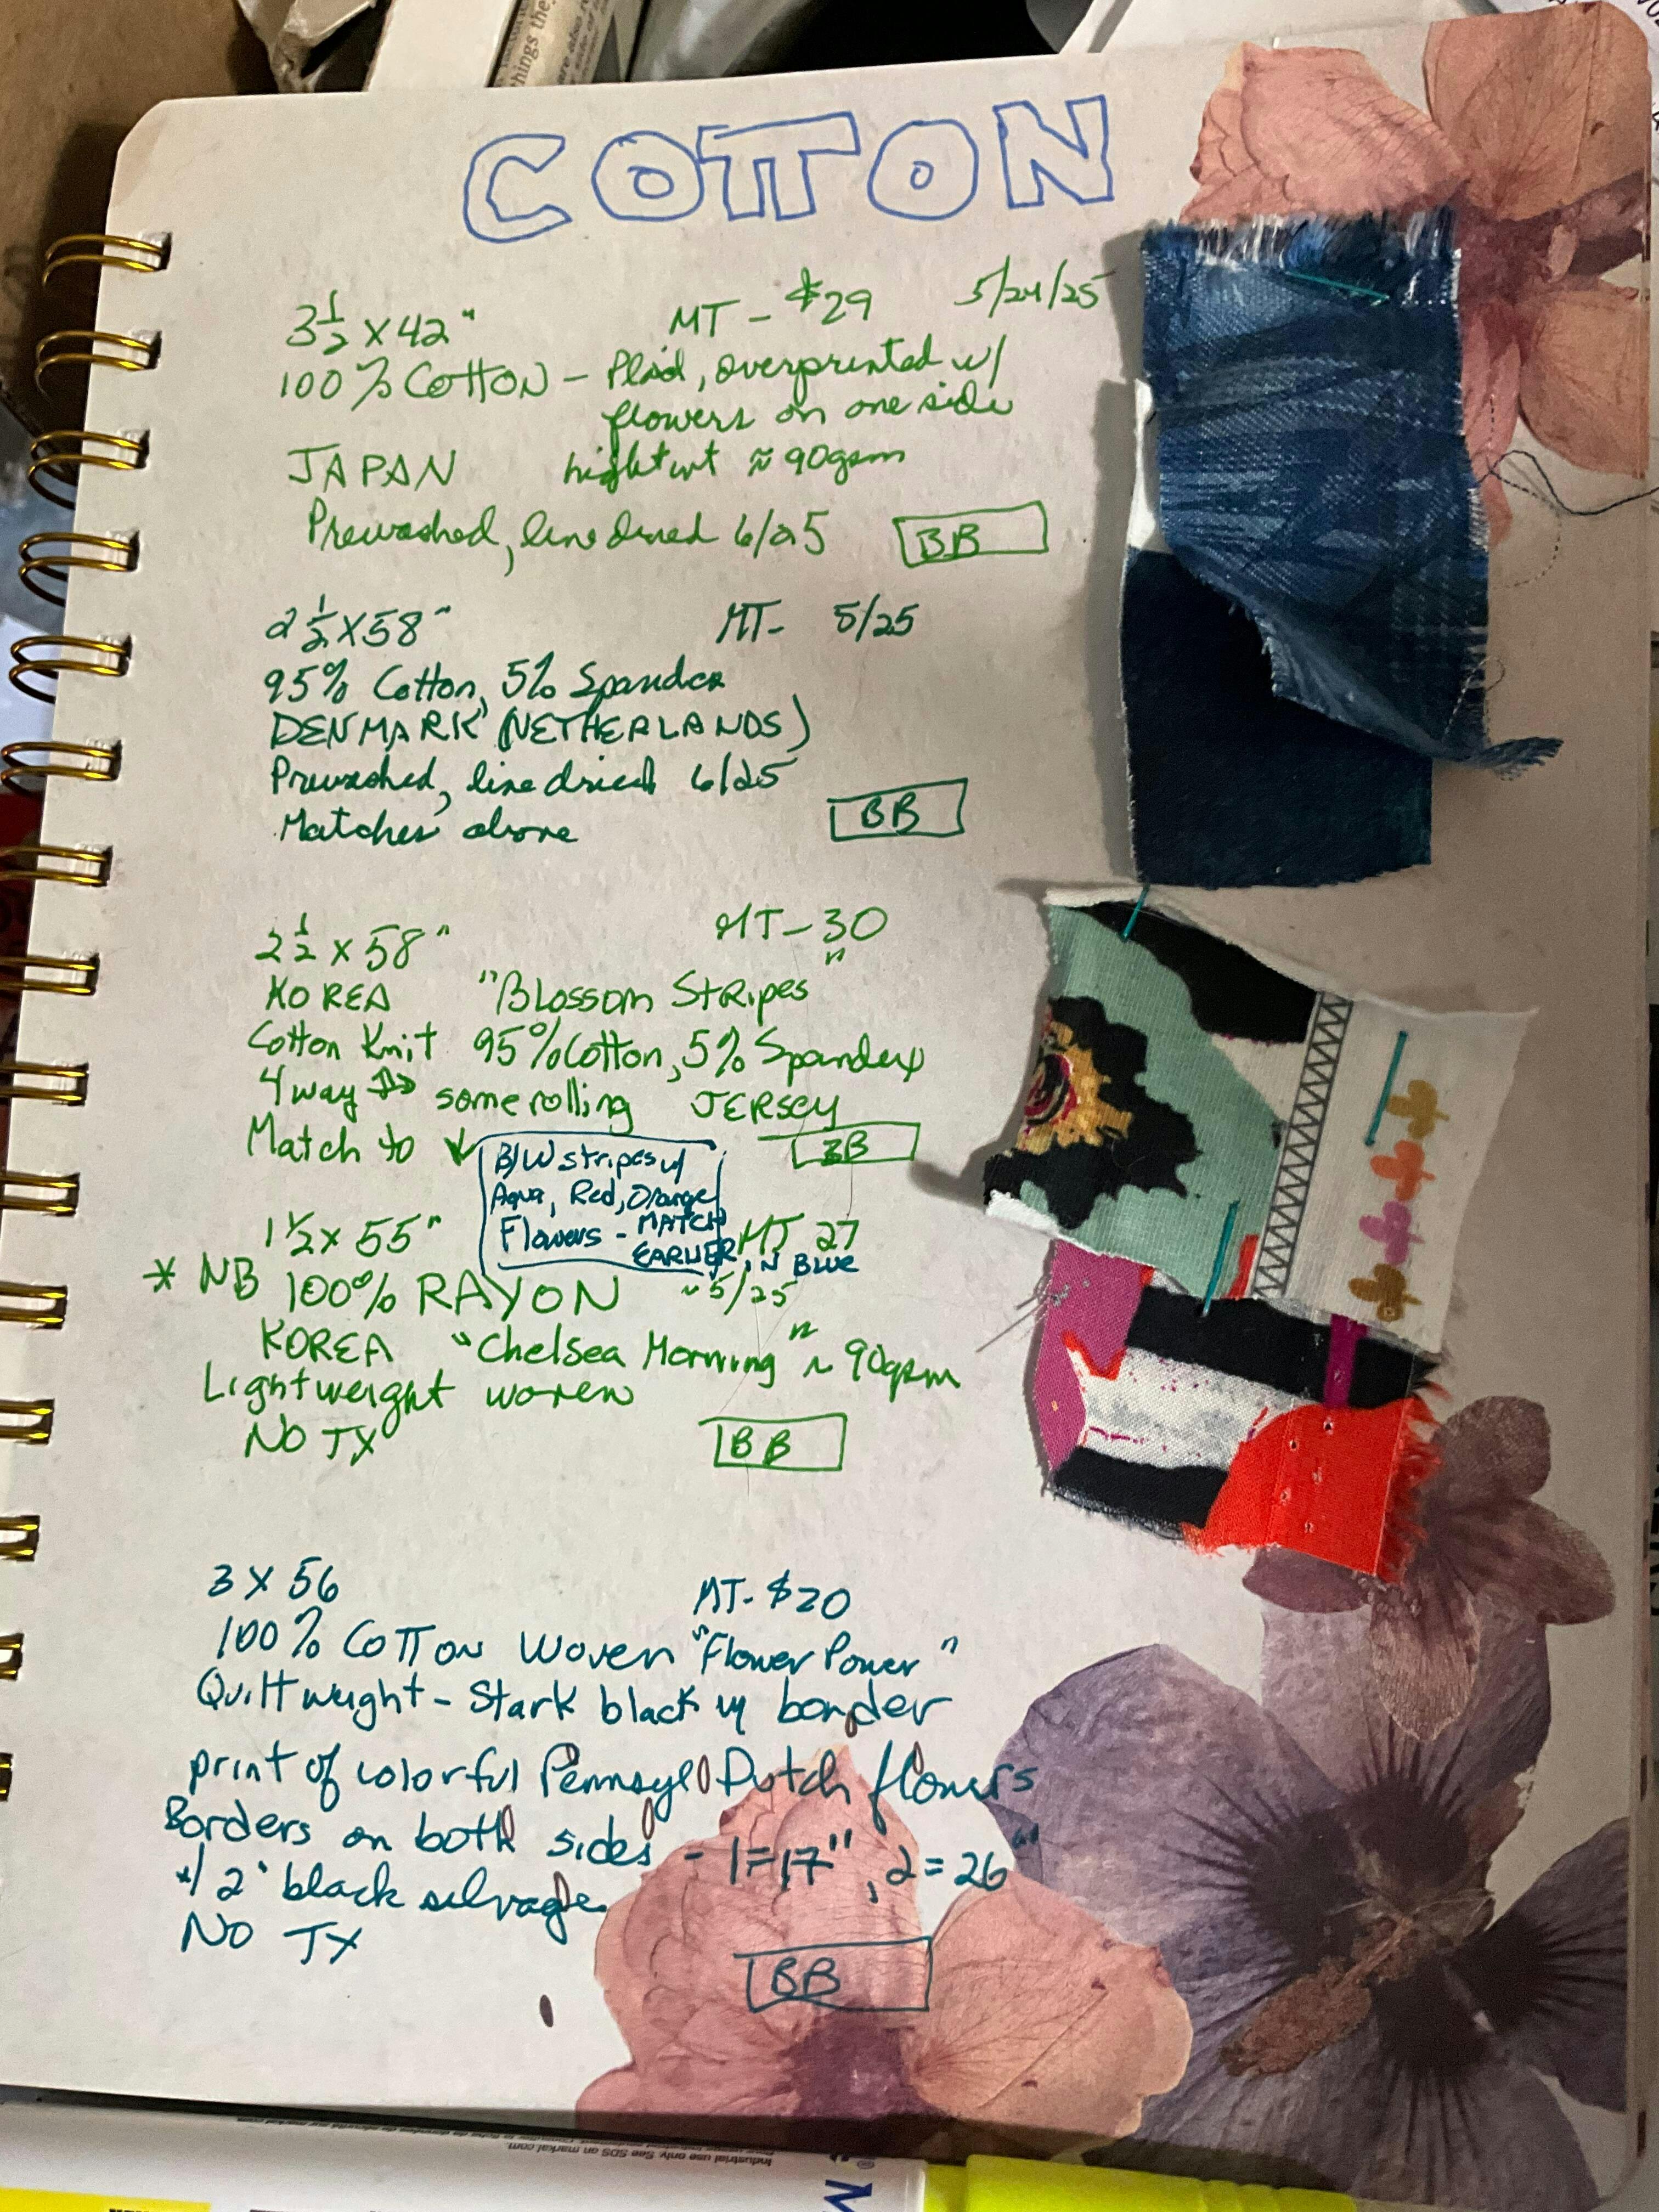 things the
COTTON
3 1/2 X 42" MT - $29 5/24/25
100% COTTON - Plaid, overprinted w/
flowers on one side
JAPAN lightwt ≈ 90gsm
Prewashed, line dried 6/25 BB
2 1/2 X 58" MT- 5/25
95% Cotton, 5% Spandex
DENMARK (NETHERLANDS)
Prewashed, line dried 6/25
Matches above BB
2 1/2 x 58" MT - 30
KOREA "Blossom Stripes"
Cotton Knit 95% Cotton, 5% Spandex
4 way some rolling JERSEY
Match to ↓ BB
B/W stripes w/
Aqua, Red, Orange
Flowers - MATCH
EARLIER IN BLUE
1 1/2 x 55" MT 27
* NB 100% RAYON ~ 5/25
KOREA "Chelsea Morning" ~ 90gsm
Lightweight woven
NO TX BB
3 X 56 MT- $20
100% COTTON Woven "Flower Power"
Quiltweight - Stark black w/ border
print of colorful Pennsyl Dutch flowers
Borders on both sides - 1=17", 2=26"
w/ 2" black selvage
NO TX
BB
Industrial use only. See SDS on markal.com